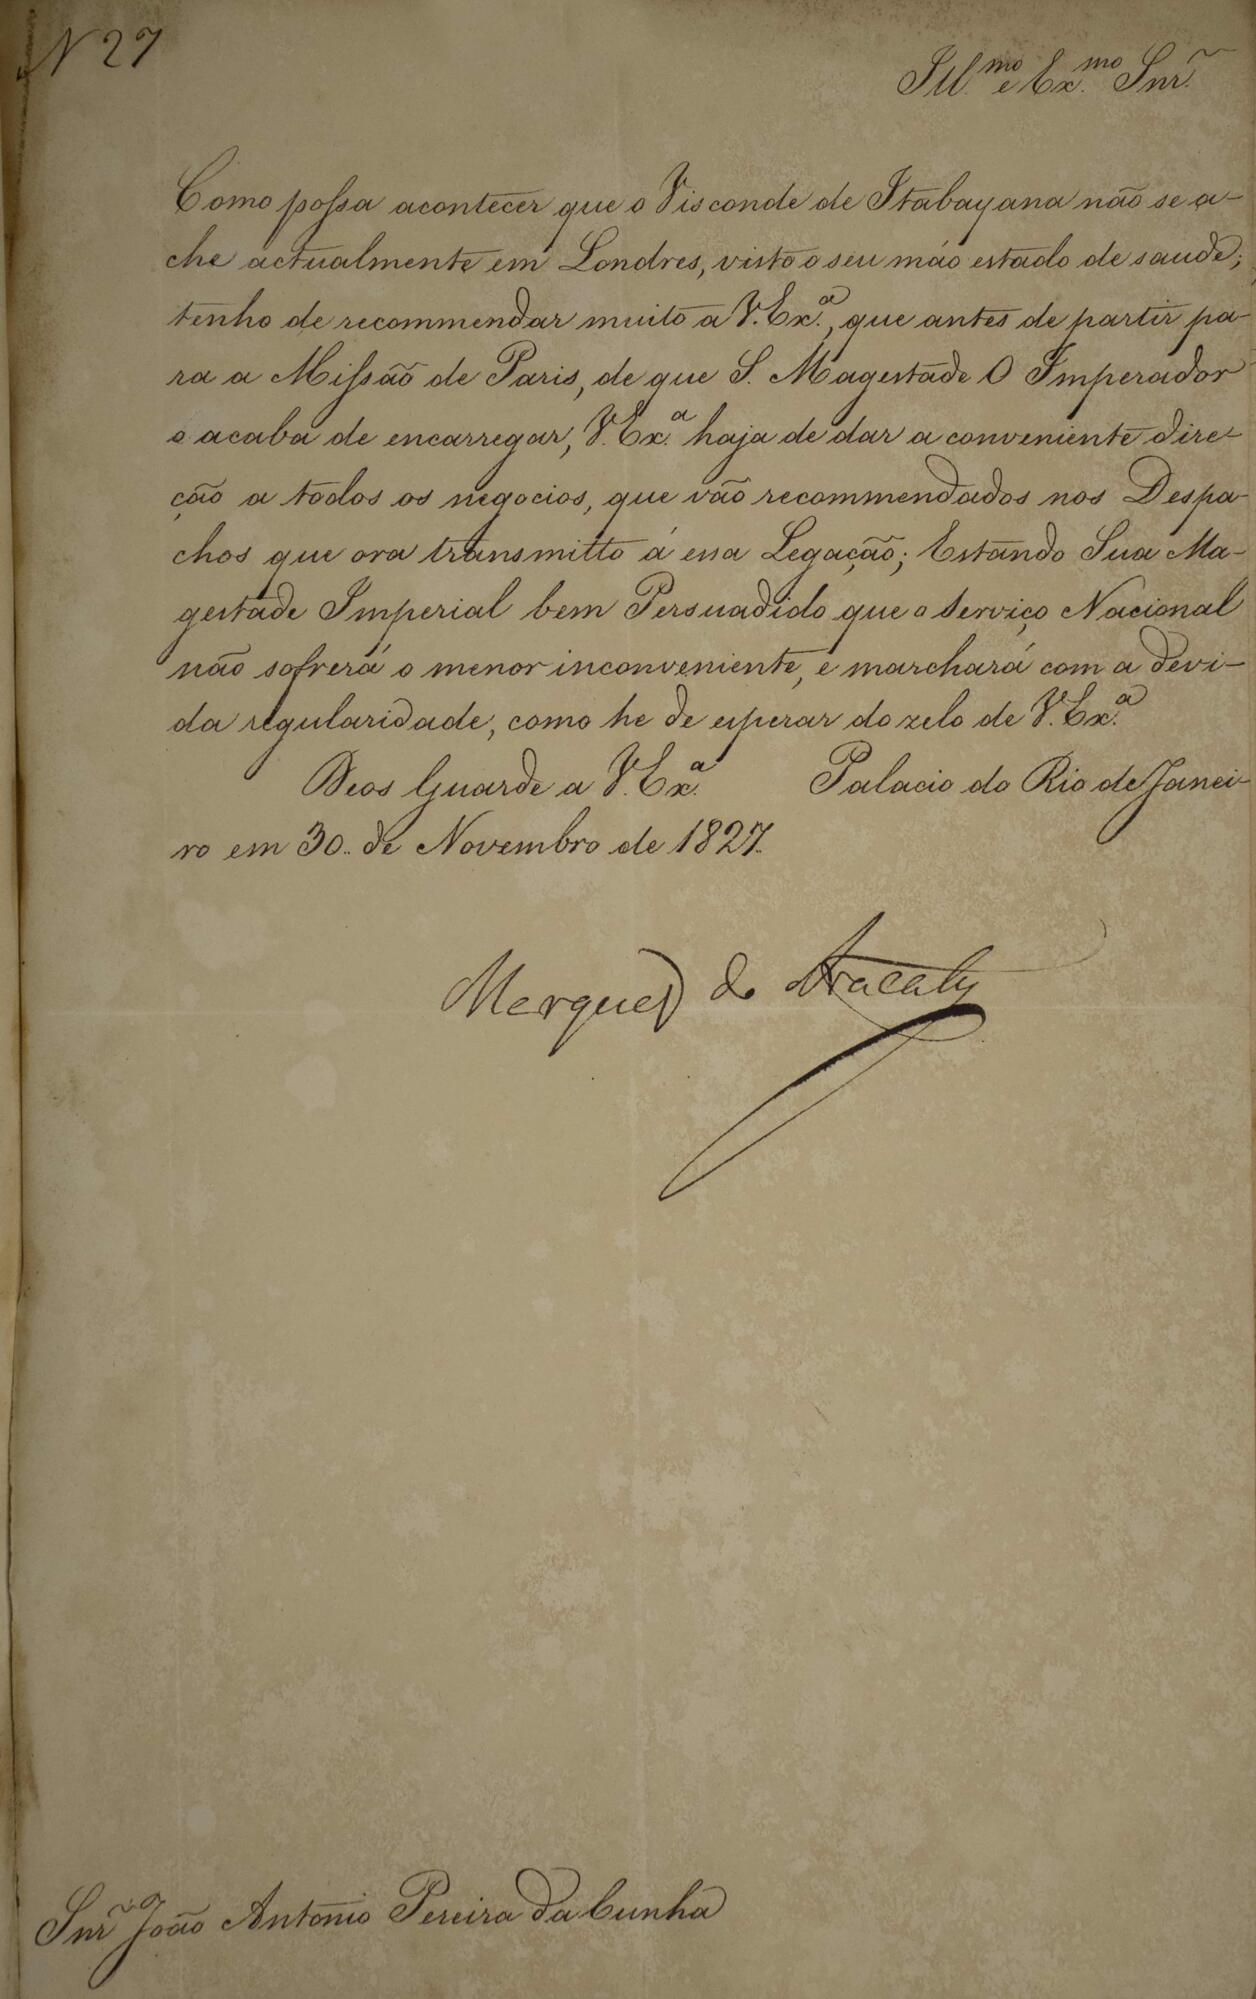 N 27
Ill.mo e Ex.mo Snr.
Como possa acontecer que o Visconde de Itabayana não se a-
che actualmente em Londres, visto o seu máo estado de saude;
tenho de recommendar muito a V. Ex.a, que antes de partir pa-
ra a Missão de Paris, de que S. Magestade O Imperador
o acaba de encarregar, V. Ex.a haja de dar a conveniente dire-
ção a todos os negocios, que vão recommendados nos Despa-
chos que ora transmitto á essa Legação; Estando Sua Ma-
gestade Imperial bem Persuadido que o Serviço Nacional
não sofrerá o menor inconveniente, e marchará com a devi-
da regularidade, como he de esperar do zelo de V. Ex.a
Deos Guarde a V. Ex.a Palacio do Rio de Janei-
ro em 30 de Novembro de 1827.
Marquez do Aracaty
Snr. João Antonio Pereira da Cunha